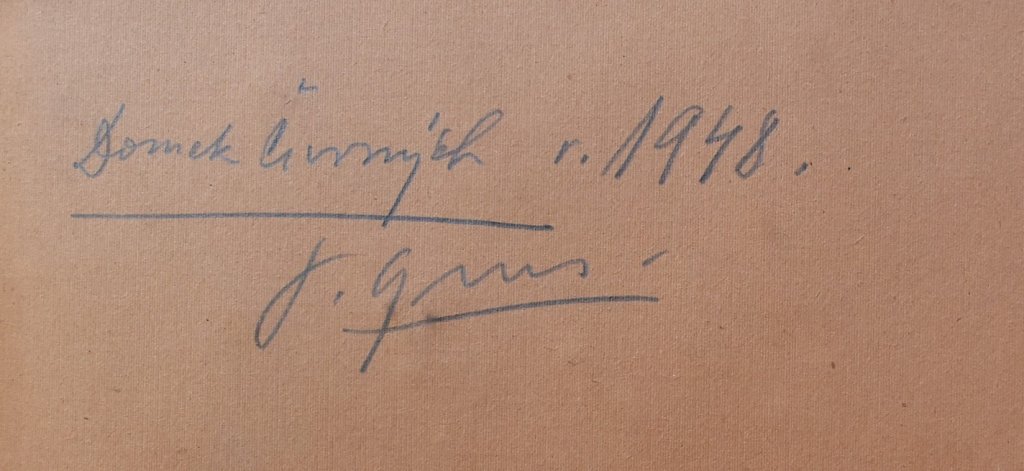 Domek Černých r. 1948.
J. Grus.